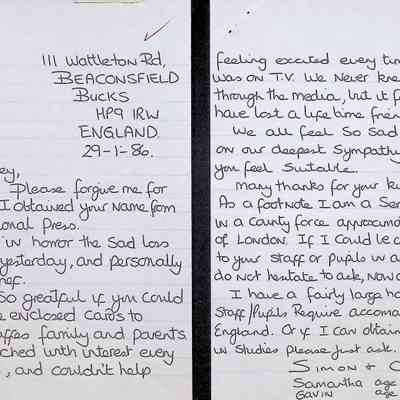 111 Wattleton Rd,
BEACONSFIELD
BUCKS
HP9 1RW
ENGLAND.
29-1-86.
ey,
Please forgive me for
I obtained your name from
ional Press.
in honor the sad loss
yesterday, and personally
ief.
so greatful if you could
e enclosed cards to
affes family and parents.
ched with interest every
, and couldn't help
feeling excited every tim
was on T.V. We never kne
through the media, but it f
have lost a life time frien
We all feel so sad
on our deepest sympathy
you feel suitable.
Many thanks for your ki
As a footnote I am a Ser
in a county force approxima
of London. If I could be o
to your staff or pupils in a
do not hesitate to ask, now o
I have a fairly large ho
staff/pupils require accoma
England. Or if I can obtain
in studies please just ask.
SIMON + C
Samantha age
GAVIN age